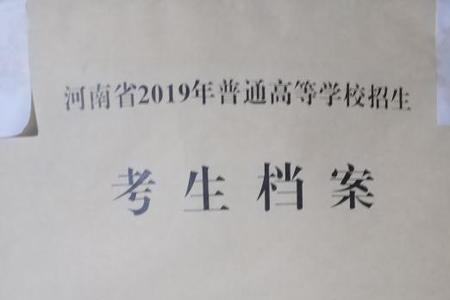 河南省2019年普通高等学校招生
考生档案